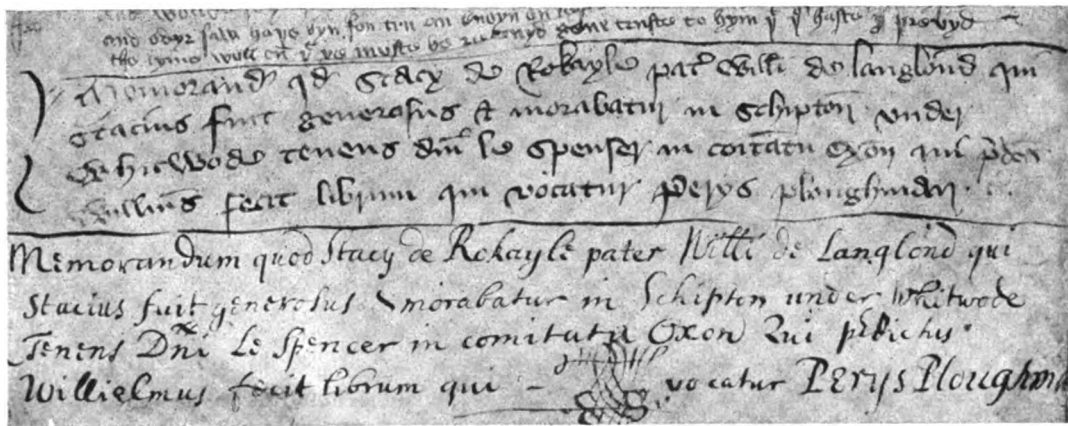 and
and oþyr
the tyme
Memorand' qd Stacy de Rokayle pat' Willi de Langlond qui
Stacius fuit generosus & morabatur in Schipton under
Whicwode tenens dni le Spenser in comitatu Oxon qui p̄d'cus
Willms fecit librum qui vocatur Perys ploughman
Memorandum quod Stacy de Rokayle pater Willi de Langlond qui
Stacius fuit generosus & morabatur in Schipton under Whitwode
Tenens Dni Le Spencer in comitatu Oxon Qui prædictus
Willielmus fecit librum qui - vocatur Perys Ploughma